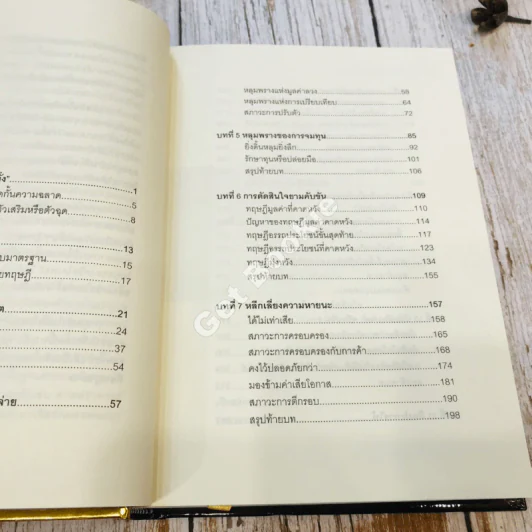 ตัดกั้นความฉลาด
1
5
ตัวเสริมหรือตัวฉุด
8
13
บมาตรฐาน 15
ยทฤษฎี 17
21
24
37
54
จ่าย 57
หลุมพรางแห่งมูลค่าลวง 58
หลุมพรางแห่งการเปรียบเทียบ 64
สภาวะการปรับตัว 72
บทที่ 5 หลุมพรางของการจมทุน 85
ยิ่งดิ้นหลุมยิ่งลึก 92
รักษาทุนหรือปล่อยมือ 101
สรุปท้ายบท 106
บทที่ 6 การตัดสินใจยามคับขัน 109
ทฤษฎีมูลค่าที่คาดหวัง 110
ปัญหาของทฤษฎีมูลค่าที่คาดหวัง 114
ทฤษฎีอรรถประโยชน์ขั้นสุดท้าย 117
ทฤษฎีอรรถประโยชน์ที่คาดหวัง 123
ทฤษฎีผังหวัง 134
สรุปท้ายบท 155
บทที่ 7 หลีกเลี่ยงความหายนะ 157
ได้ไม่เท่าเสีย 158
สภาวะการครอบครอง 165
สภาวะการครอบครองกับการค้า 168
คงไว้ปลอดภัยกว่า 174
มองข้ามค่าเสียโอกาส 181
สภาวะการตีกรอบ 190
สรุปท้ายบท 198